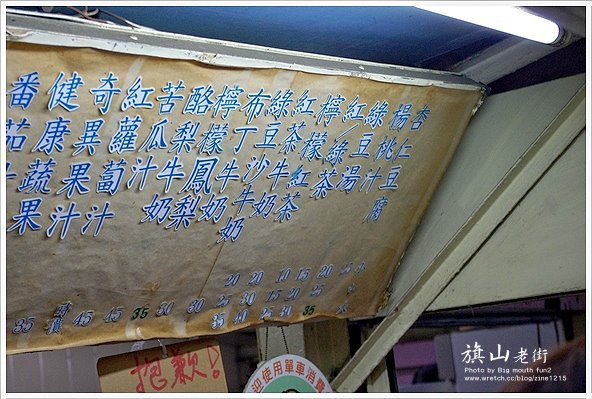 杏仁豆腐
楊桃汁
綠豆湯
紅/綠茶
檸檬紅茶
紅茶牛奶
綠豆沙牛奶
布丁牛奶
檸檬鳳梨
酪梨牛奶
苦瓜汁
紅蘿蔔汁
奇異果汁
健康蔬果
番茄
35 時價 45 45 35 30 30
抱歉!
歡迎使用單車消費
旗山老街
Photo by Big mouth fun2
www.wretch.cc/blog/zine1215